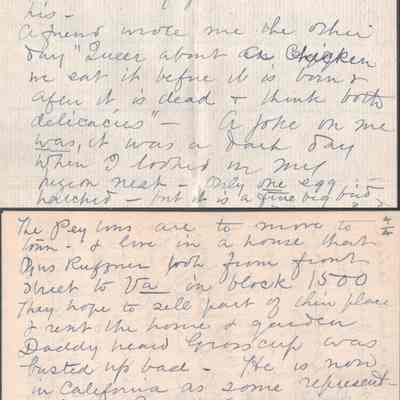 his -
A friend wrote me the other
day "Queer about a chicken
we eat it before it is born &
after it is dead & think both
delicacies" - A joke on me
was, it was a dark day
when I looked in my
pigeon nest - Only one egg
hatched - but it is a fine big bird
The Peytons are to move to
town - & live in a house that
Gus Ruffner took from front
street to Va in block 1500
They hope to sell part of their place
& rent the home & garden
Daddy heard Grosscup was
busted up bad - He is now
in California as some represent-